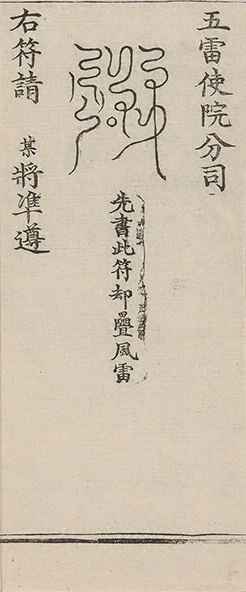 五雷使院分司
先書此符却疊風雷
右符請某將准遵